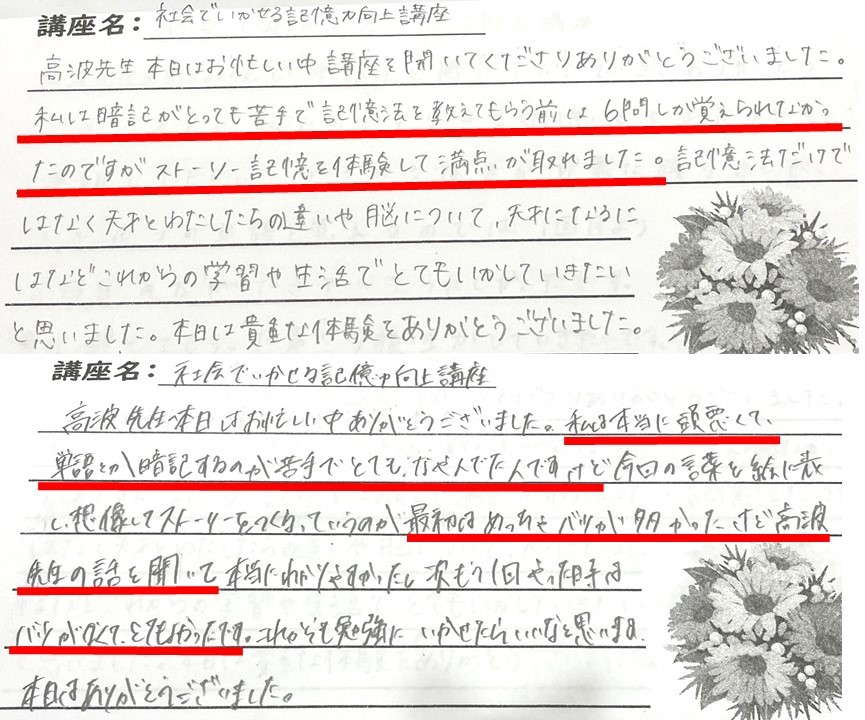 講座名: 社会でいかせる記憶力向上講座
高波先生 本日はお忙しい中 講座を開いてくださりありがとうございました。
私は暗記がとっても苦手で記憶法を教えてもらう前は 6問しか覚えられなかっ
たのですが ストーリー記憶を体験して満点が取れました。記憶法だけで
はなく天才とわたしたちの違いや脳について、天才になるに
はなどこれからの学習や生活でとてもいかしていきたい
と思いました。本日は貴重な体験をありがとうございました。
講座名: 社会でいかせる記憶力向上講座
高波先生本日はお忙しい中ありがとうございました。私は本当に頭悪くて、
単語とか暗記するのが苦手でとても、なやんでたんですけど今回の言葉を絵に表
し、想像してストーリーをつくるっていうのが最初はめっちゃバツが多かったけど高波
先生の話を聞いて本当にわかりやすかったし次もう1回やった時は
バツがなくて、とてもよかったです。これからも勉強にいかせたらいいなと思います。
本日はありがとうございました。